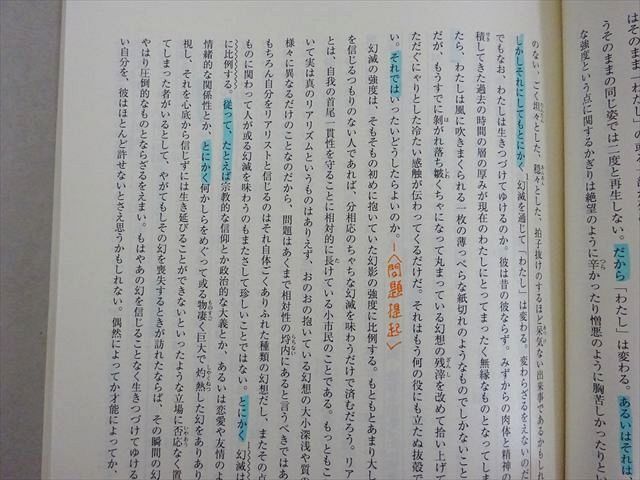 はそのまま「わたし」
うそのままの同じ姿では二度と再生しない。だから「わたし」は変わる。あるいはそれは
な強度という点に関するかぎりは絶望のように辛かったり憎悪のように胸苦しかったりとい
のない、ごく坦々とした、穏々とした、拍子抜けのするほど呆気ない出来事であるかもしれ
しかしそれにしてもとにかく、幻滅を通じて「わたし」は変わる。変わらざるをえないのだ
でもなお、わたしは生きつづけてゆけるのか。彼は昔の彼ならず。みずからの肉体と精神の
積してきた過去の時間の層の厚みが現在のわたしにとってまったく無縁なものとなってしま
たら、わたしは風に吹きまくられる一枚の薄っぺらな紙切れのようなものでしかないこと
だが、もうすでに剝がれ落ち皺くちゃになって丸まっている幻想の残滓を改めて拾い上げて
ただぐにゃりとした冷たい感触が伝わってくるだけだ。それはもう何の役にも立たぬ抜殻で
い。それではいったいどうしたらよいのか。
〈問題提起〉
幻滅の強度は、そもそもの初めに抱いていた幻影の強度に比例する。もともとあまり大し
を信じるつもりのない人であれば、分相応のちゃちな幻滅を味わうだけで済むだろう。リア
とは、自我の首尾一貫性を守ることに相対的に長けている小市民のことである。もっともこ
いて実は真のリアリズムというものはありえず、おのおの抱いている幻想の大小深浅や質の
様々に異なるだけのことなのだから、問題はあくまで相対性の埒内にあると言うべきではあ
もちろん自分をリアリストと信じるのはそれ自体ごくありふれた種類の幻想だし、またその点
ものに関わって人が或る幻滅を味わうのもまたさして珍しいことではない。とにかく、幻滅は
に比例する。従って、たとえば宗教的な信仰とか政治的な大義とか、あるいは恋愛や友情のよ
情緒的な関係性とか、とにかく何かしらをめぐって或る物凄く巨大で灼熱した幻をありあり
視し、それを心底から信じずには生き延びることができないといったような立場に否応なく置
てしまった者がいるとして、やがてもしその幻を喪失するときが訪れたならば、その瞬間の幻
やはり圧倒的なものとならざるをえまい。もはやあの幻を信じることなく生きつづけてゆける
い自分を、彼はほとんど許せないとさえ思うかもしれない。偶然によってか才能によってか、